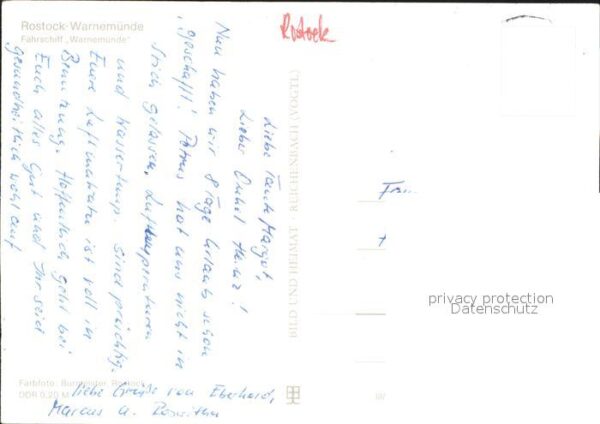 Rostock-Warnemünde
Fährschiff „Warnemünde“
Rostock
Liebe Tante Margot,
Lieber Onkel Heinz!
Nun haben wir 8 Tage Urlaub schon
geschafft! Petrus hat uns nicht im
Stich gelassen, Lufttemperaturen
und Wassertemp. sind prächtig.
Eure Luftmatratze ist voll in
Benutzung. Hoffentlich geht bei
Euch alles gut und Ihr seid
gesundheitlich wohlauf
liebe Grüße von Eberhard,
Marcus u. Roswitha
BILD UND HEIMAT REICHENBACH (VOGTL)
Farbfoto: Rostock
DDR 0,20 M
privacy protection
Datenschutz